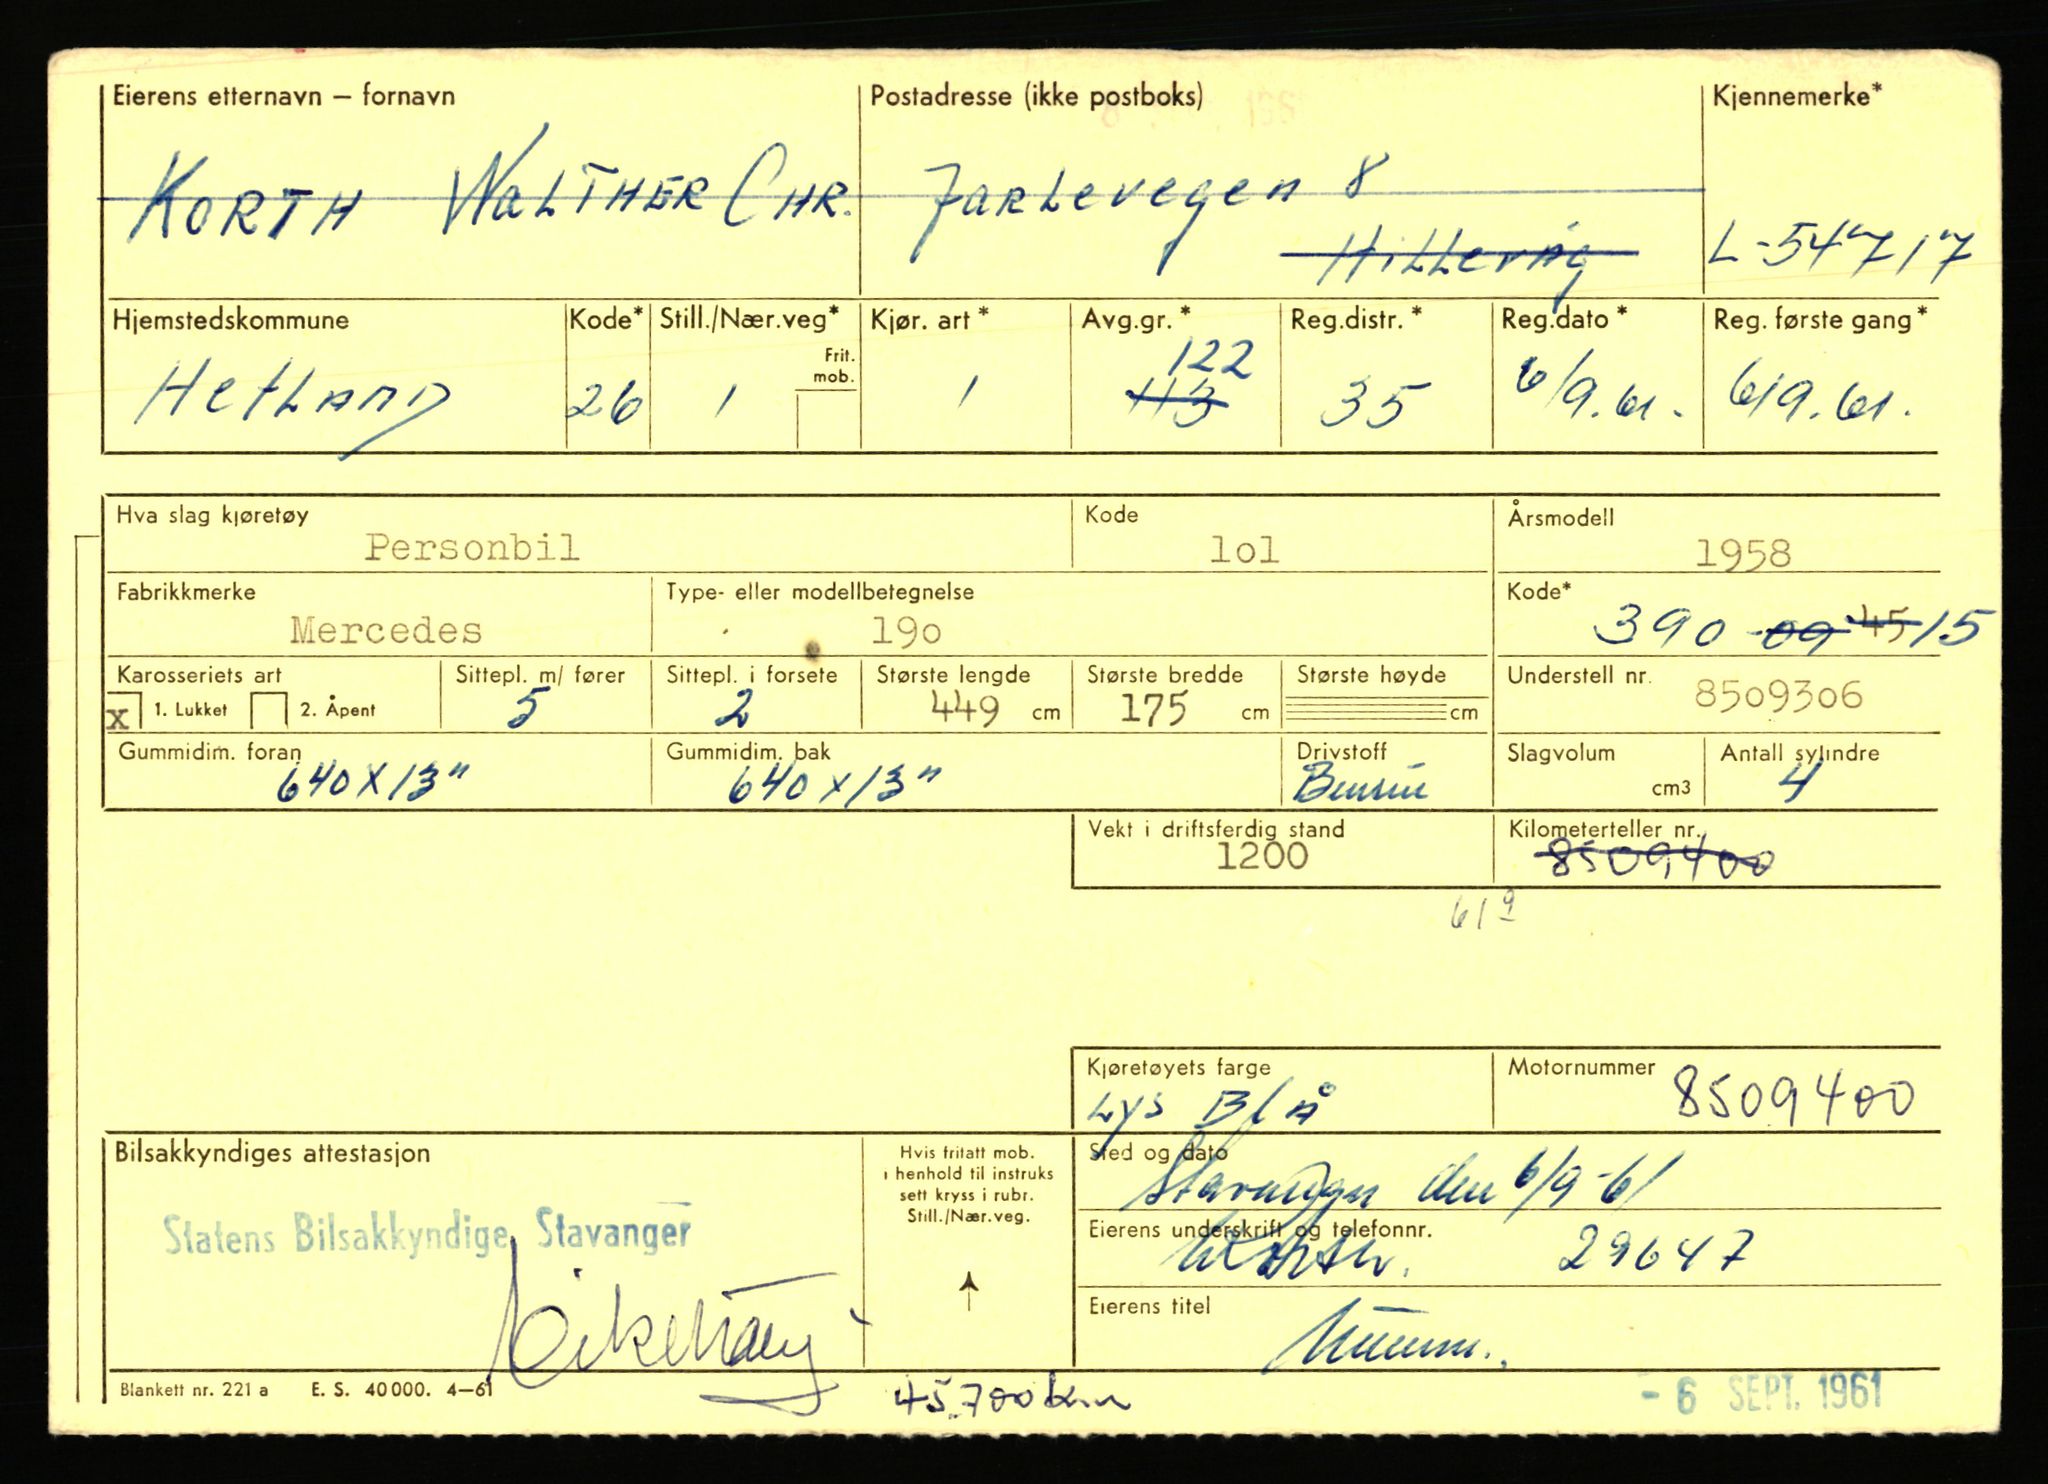 Eierens etternavn – fornavn Postadresse (ikke postboks) Kjennemerke*
KORTH WALTHER CHR. JARLEVEGEN 8
HILLEVÅG L-54717
Hjemstedskommune Kode* Still./Nær.veg* Kjør. art * Avg.gr. * Reg.distr. * Reg.dato * Reg. første gang *
Frit. mob. 122
HETLAND 26 1 1 113 35 6/9.61. 6/9.61.
Hva slag kjøretøy Kode Årsmodell
Personbil lol 1958
Fabrikkmerke Type- eller modellbetegnelse Kode*
Mercedes 19o 390 09 45 15
Karosseriets art Sittepl. m/ fører Sittepl. i forsete Største lengde Største bredde Største høyde Understell nr.
x 1. Lukket 2. Åpent 5 2 449 cm 175 cm cm 8509306
Gummidim. foran Gummidim. bak Drivstoff Slagvolum Antall sylindre
640 x 13" 640 x 13" Bensin cm3 4
Vekt i driftsferdig stand Kilometerteller nr.
1200 8509400
61 9
Kjøretøyets farge Motornummer
LYS BLÅ 8509400
Bilsakkyndiges attestasjon Hvis fritatt mob. i henhold til instruks sett kryss i rubr. Still./Nær.veg. Sted og dato
Stavanger den 6/9-61
Statens Bilsakkyndige, Stavanger
Eierens underskrift og telefonnr.
Korth. 29647
Eierens titel
Blankett nr. 221 a E. S. 40 000. 4–61 45.700 km - 6 SEPT. 1961